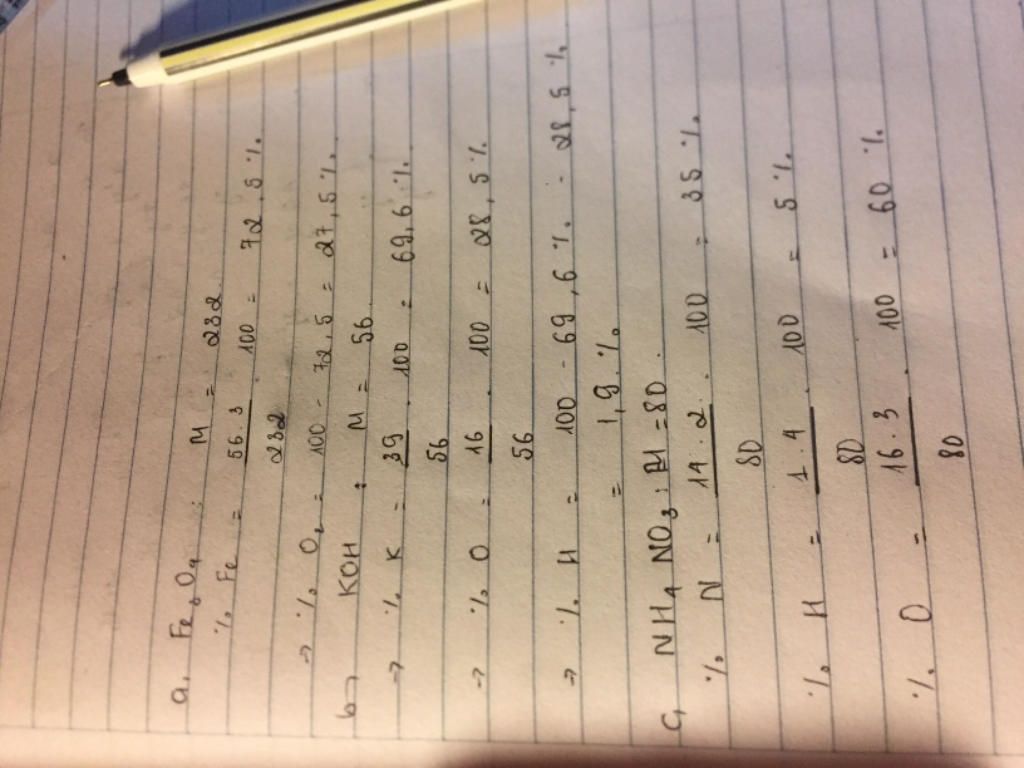 a, Fe3O4 : M = 232
% Fe = 56.3/232 . 100 = 72,5 %
→ % O2 = 100 - 72,5 = 27,5 %
b, KOH : M = 56
→ % K = 39/56 . 100 = 69,6 %
→ % O = 16/56 . 100 = 28,5 %
→ % H = 100 - 69,6 % - 28,5 %
= 1,9 %
c, NH4NO3 : M = 80
% N = 14.2/80 . 100 = 35 %
% H = 1.4/80 . 100 = 5 %
% O = 16.3/80 . 100 = 60 %